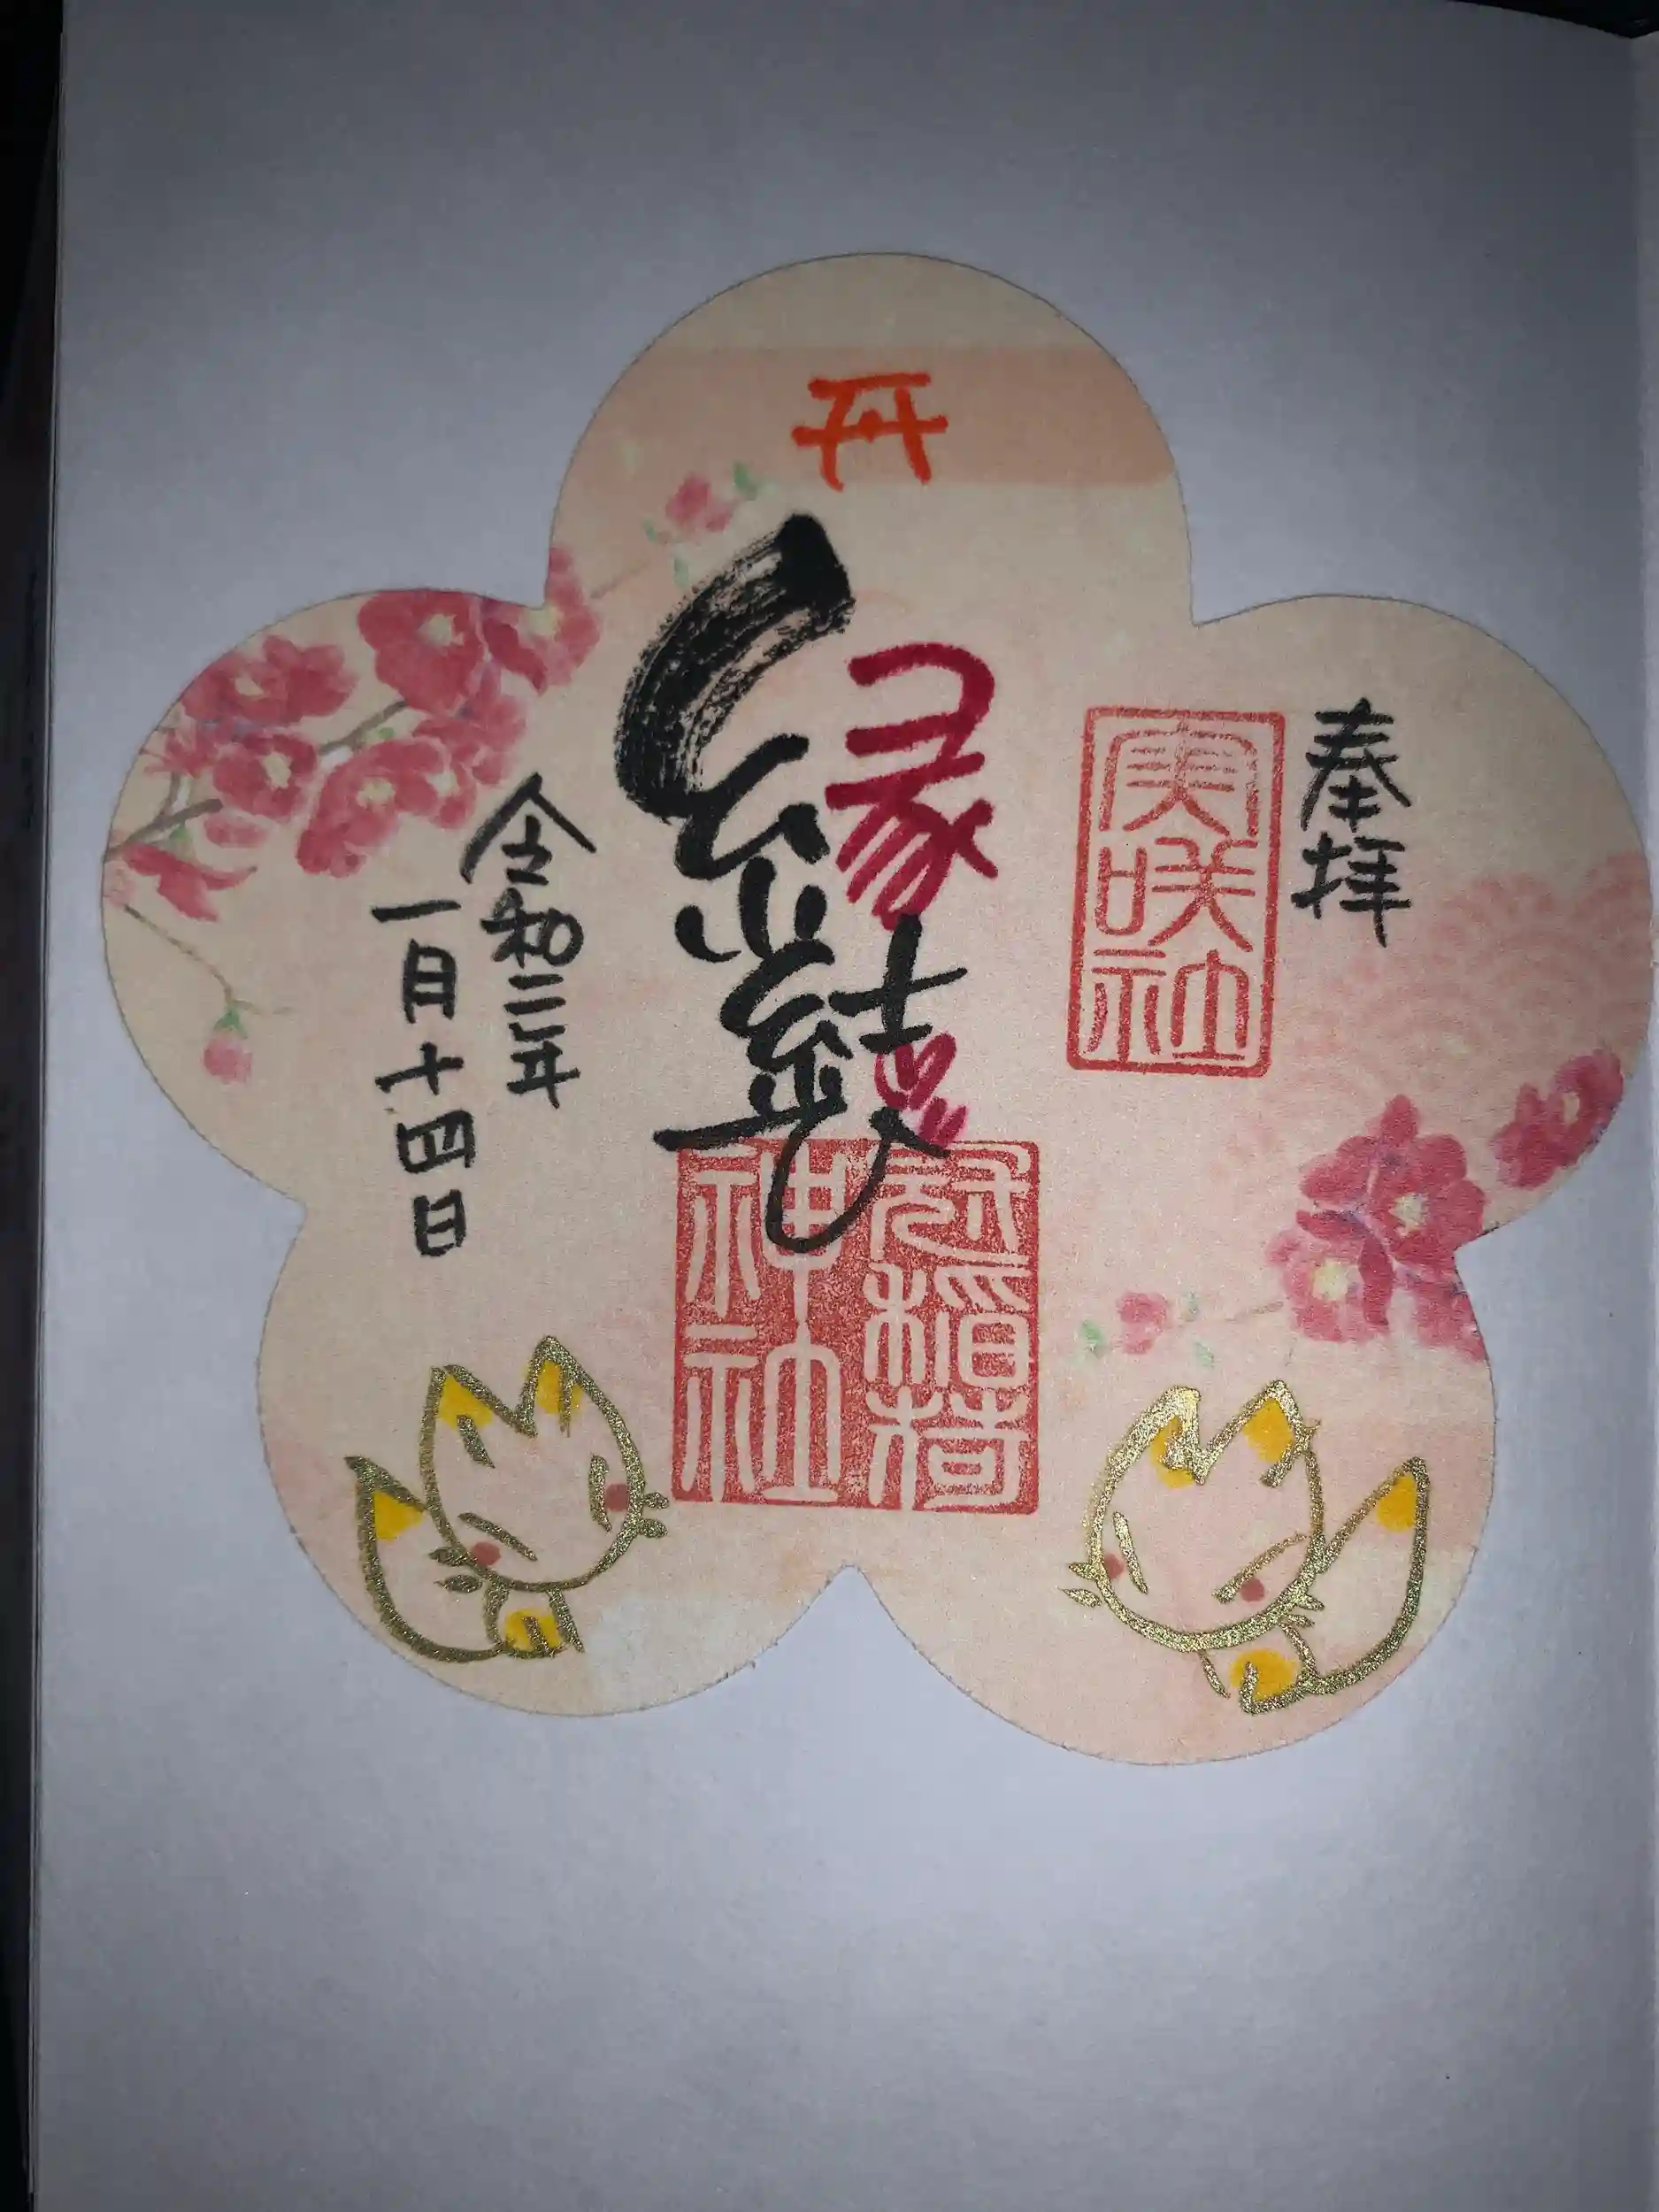 奉拝
実咲社
縁結
冠稲荷
神社
令和二年
一月十四日